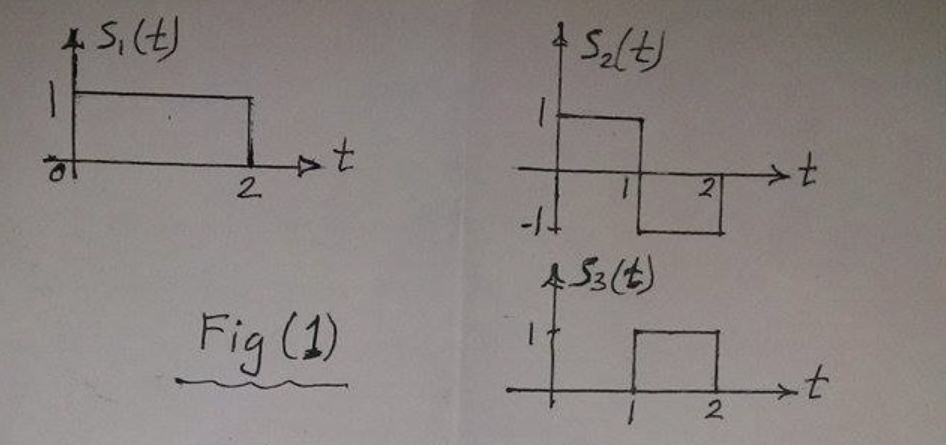 S₁(t)
1
0
2
t
S₂(t)
1
1
2
t
-1
S₃(t)
1
1
2
t
Fig (1)